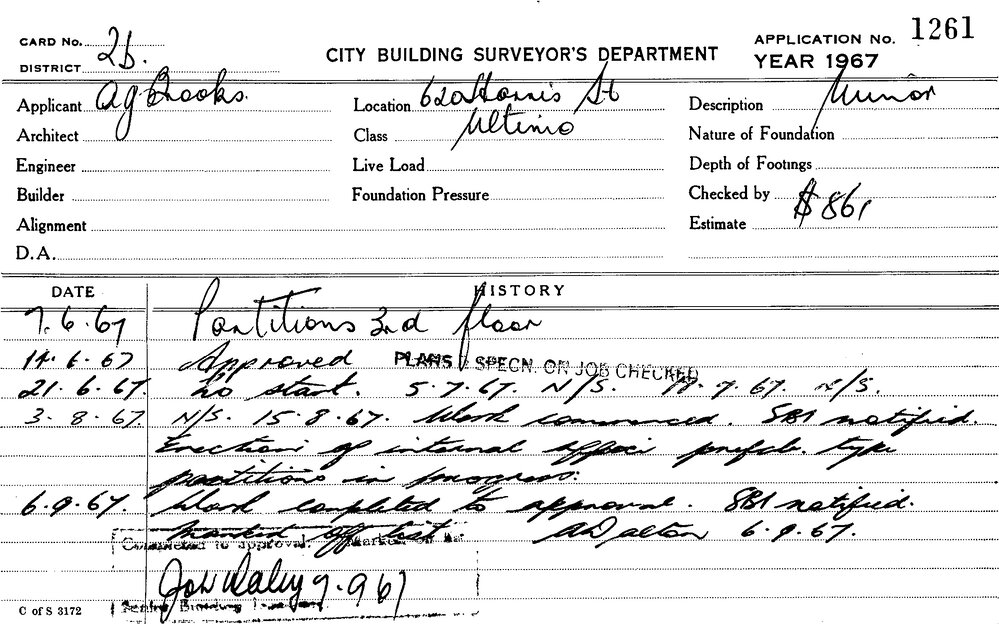 CARD No. 2b.
DISTRICT
CITY BUILDING SURVEYOR'S DEPARTMENT
APPLICATION No. 1261
YEAR 1967
Applicant A G Brooks.
Location 620 Harris St
Description Minor
Architect
Class Ultimo
Nature of Foundation
Engineer
Live Load
Depth of Footings
Builder
Foundation Pressure
Checked by
Alignment
Estimate $861
D.A.
DATE HISTORY
7.6.67 Partitions 3rd floor
14.6.67 Approved PLANS / SPECN. ON JOB CHECKED
21.6.67. No start. 5.7.67. N/S. 7.67. N/S.
3.8.67. N/S. 15.8.67. Work commenced. SBI notified.
Erection of internal office prefab. type
partitions in progress.
6.9.67. Work completed to approval. SBI notified.
Marked off list ADalton 6.9.67.
Completed to approval. Marked off list
John Daley 7.9.67
Senior Building Inspector.
C of S 3172